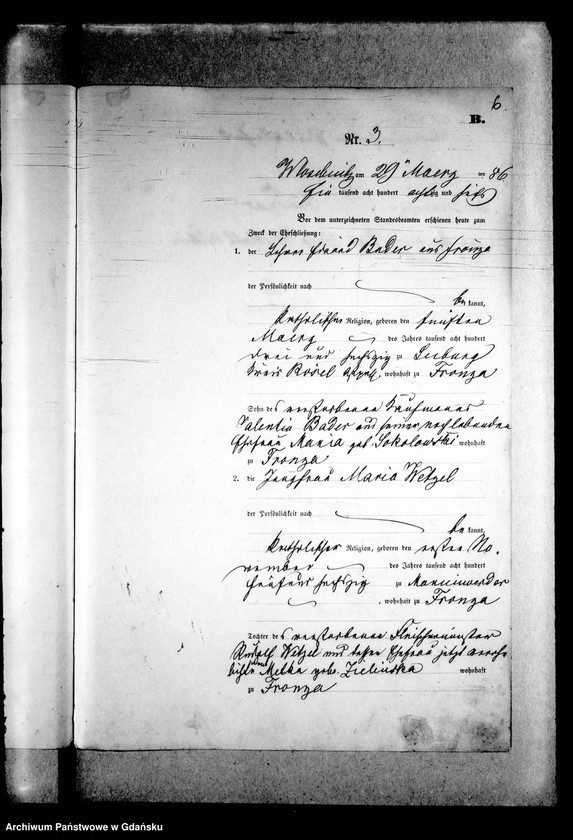 6.
B.
Nr. 3.
am 29 Maerz 86
Ein tausend acht hundert achtzig und sechs
Vor dem unterzeichneten Standesbeamten erschienen heute zum
Zweck der Eheschließung:
1. der Lehrer Eduard Bader aus Fronza
der Persönlichkeit nach
be kannt,
katholischer Religion, geboren den fünften
Maerz des Jahres tausend acht hundert
drei und sechszig zu
Kreis Kosel, wohnhaft zu Fronza
Sohn des verstorbenen Kaufmanns
Valentin Bader und seiner noch lebenden
Ehefrau Maria geb Sokolowski wohnhaft
zu Fronza
2. die Jungfrau Maria Wetzel
der Persönlichkeit nach
be kannt,
katholischer Religion, geboren den ersten No-
vember des Jahres tausend acht hundert
fünf und sechszig zu Marienwerder
, wohnhaft zu Fronza
Tochter des verstorbenen Fleischermeister
Rudolf Wetzel und dessen Ehefrau jetzt
Metka gebr. Zielinska wohnhaft
zu Fronza
Archiwum Państwowe w Gdańsku